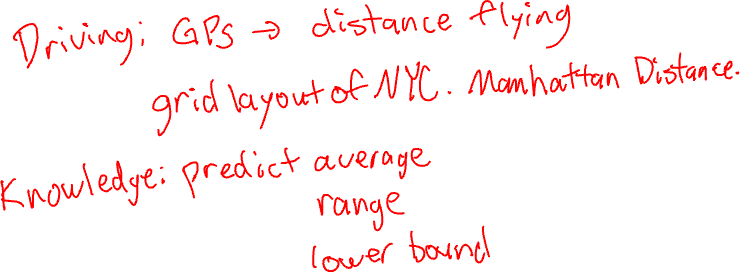 Driving: GPS → distance flying
grid layout of NYC. Manhattan Distance.
Knowledge: predict average
range
lower bound